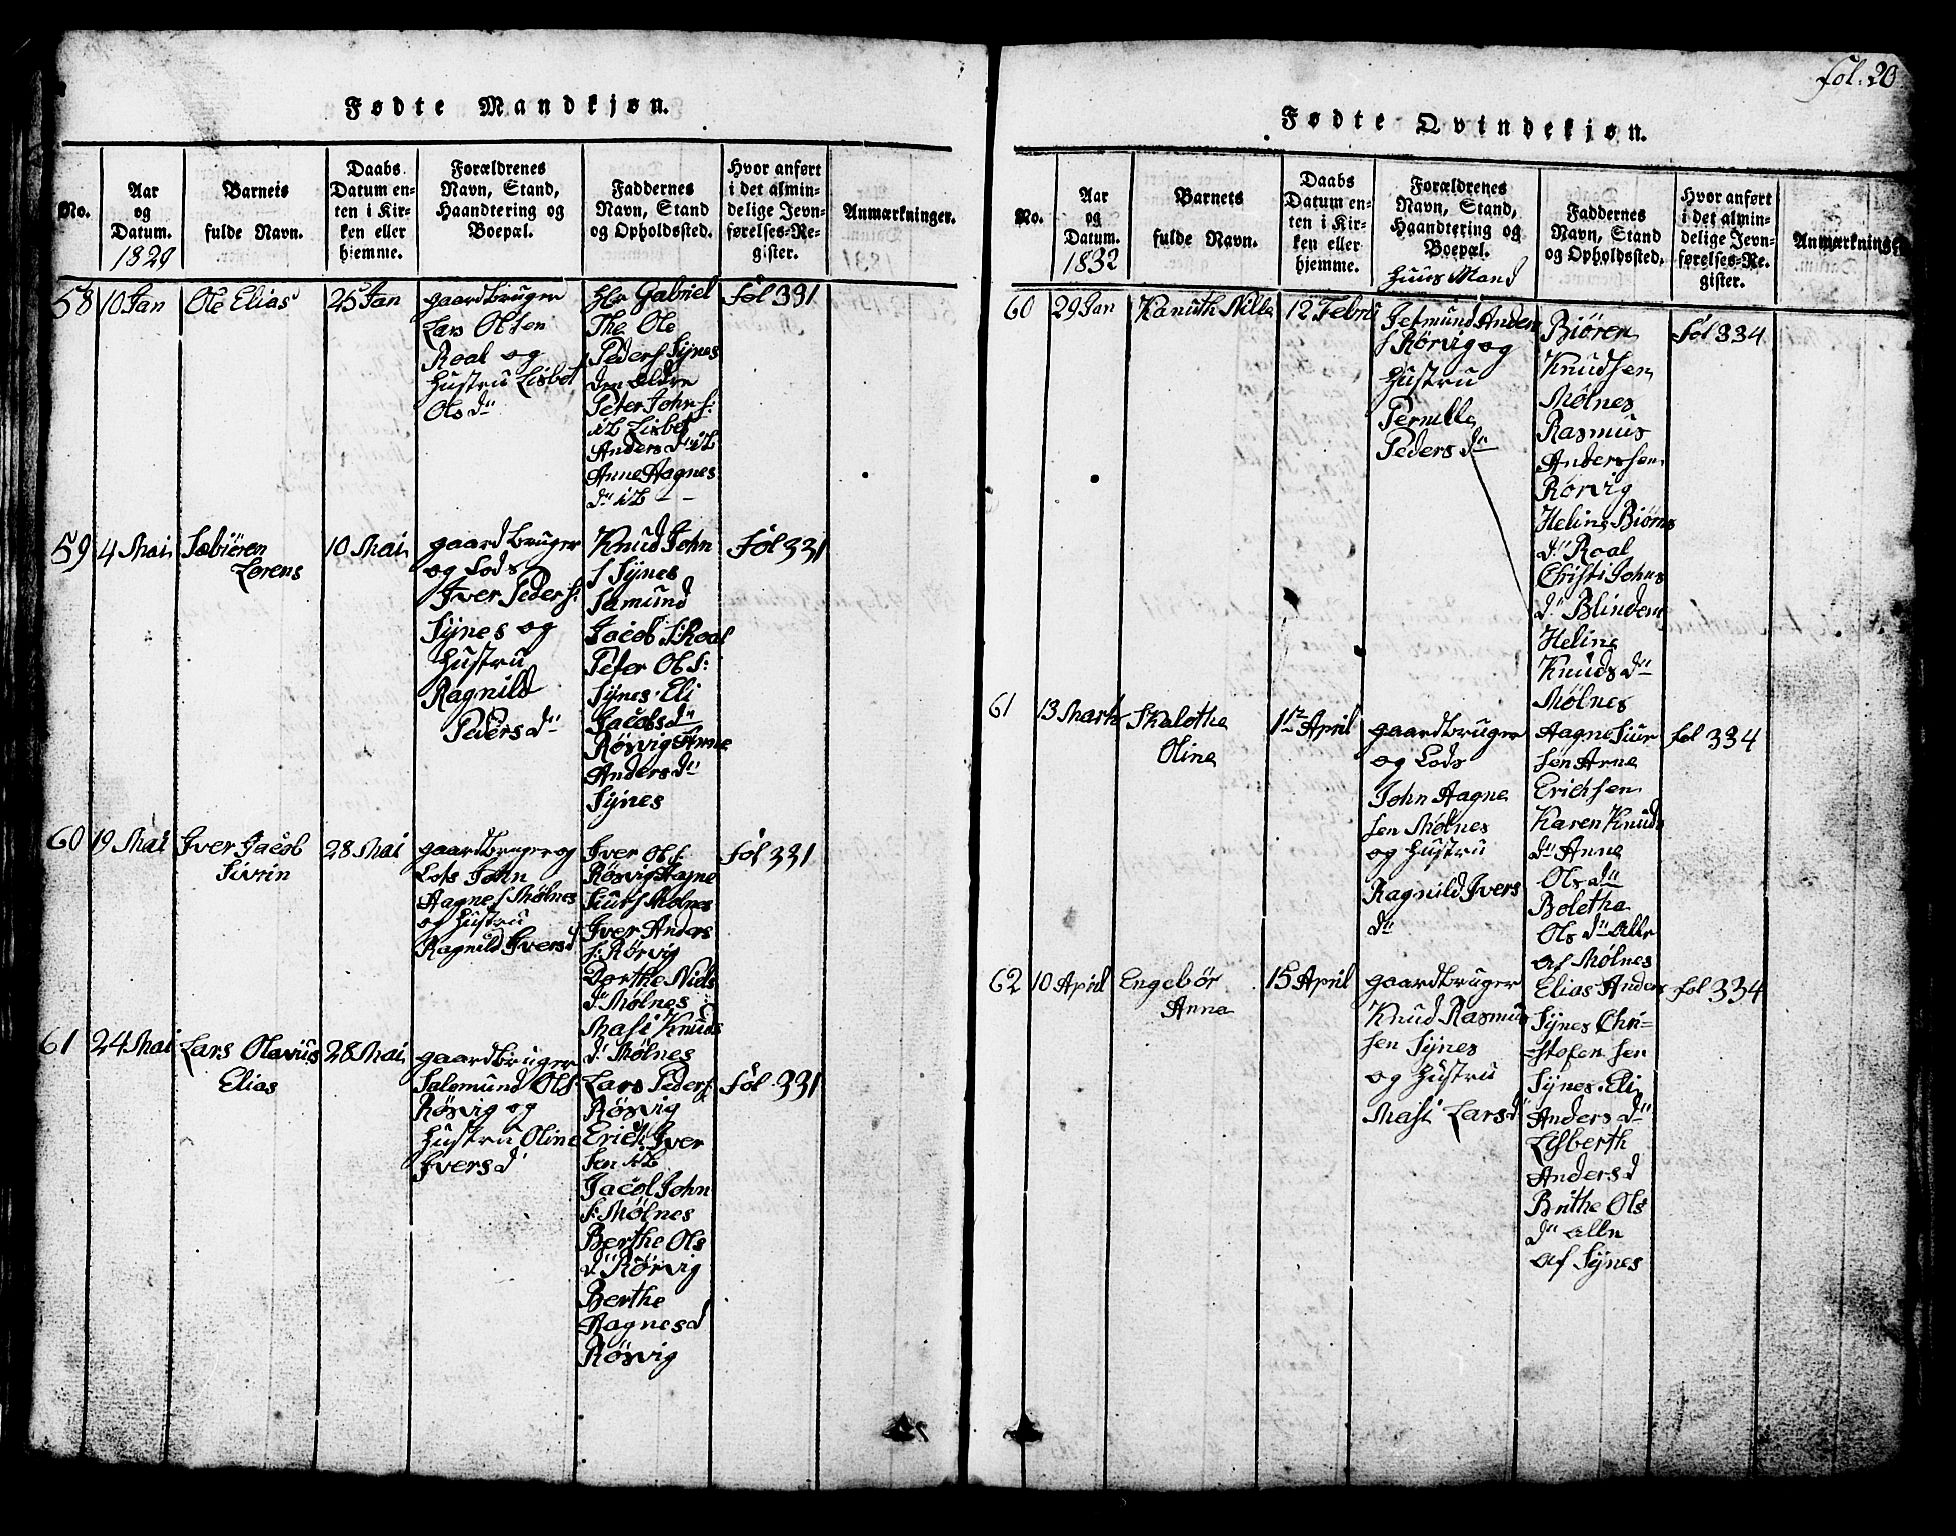 fol. 20
Fødte Mandkjøn.
No.
Aar
og
Datum.
1829
Barnets
fulde Navn.
Daabs
Datum en-
ten i Kir-
ken eller
hjemme.
Forældrenes
Navn, Stand,
Haandtering og
Boepæl.
Faddernes
Navn, Stand
og Opholdssted.
Hvor anført
i det almin-
delige Jevn-
førelses-Re-
gister.
Anmærkninger.
58
10 Jan
Ole Elias
25 Jan
gaardbruger
Lars Olsen
Roal og
Hustru Lisbet
Ols dr
Hr Gabriel
The Ole
Peders Synes
den ældre
Peter John s:
ib Lisbet
Anders dr ib
Anne Aagnes
dr ib
Føl 331
59
4 Mai
Sæbiören
Lorens
10 Mai
gaardbruger
og Lods
Iver Peders:
Synes og
Hustru
Ragnild
Peders dr
Knud John
s Synes
Samund
Jacob s: Roal
Peter Ols:
Synes. Eli
Jacobs dr
Rösvig Anne
Anders dr
Synes
Føl 331
60
19 Mai
Iver Jacob
Sivrin
28 Mai
gaardbruger og
Lots John
Aagnes Mølnes
og Hustru
Ragnild Ivers d
Iver Ols:
Rösvig Aagne
Siurs Mølnes
Iver Anders
s: Rørvig
Dorthe Niels
dr Mølnes
Masi Knuds
dr Mølnes
Føl 331
61
24 Mai
Lars Olavius
Elias
28 Mai
gaardbruger
Salomund Ols:
Rösvig og
Hustru Oline
Ivers d
Lars Peders:
Rösvig
Erich Iver
sen ib
Jacob John
s: Mølnes
Berthe Ols
dr Rörvig
Berthe
Aagnes d
Rösvig
Føl 331
Fødte Qvindekjøn.
No.
Aar
og
Datum.
1832
Barnets
fulde Navn.
Daabs
Datum en-
ten i Kir-
ken eller
hjemme.
Forældrenes
Navn, Stand,
Haandtering og
Boepæl.
Faddernes
Navn, Stand
og Opholdssted.
Hvor anført
i det almin-
delige Jevn-
førelses-Re-
gister.
Anmærkninger
60
29 Jan
Kanuth Nille
12 Febru
Huus Mand
Getmund Anders
s Rørvig og
Hustru
Pernille
Peders dr
Biören
Knudsen
Mølnes
Rasmus
Anderssen
Rörvig
Heline Biörns
dr Roal
Christi Johns
dr Blindem
Heline
Knuds dr
Mølnes
Føl 334
61
13 Marts
Skalotha
Oline
1ste April
gaardbruger
og Lods
John Aagne
sen Mølnes
og Hustru
Ragnild Ivers
dr
Aagne Siur
sen Arne
Erichsen
Karen Knuds
dr Anne
Ols dr
Boletha
Ols dr alle
af Mølnes
føl 334
62
10 April
Engebör
Anna
15 April
gaardbruger
Knud Rasmus
sen Synes
og Hustru
Masi Lars d
Elias Anders
Synes Chri-
stofen sen
Synes. Eli
Anders dr
Lisberth
Anders d
Brithe Ols
dr alle
af Synes
føl 334